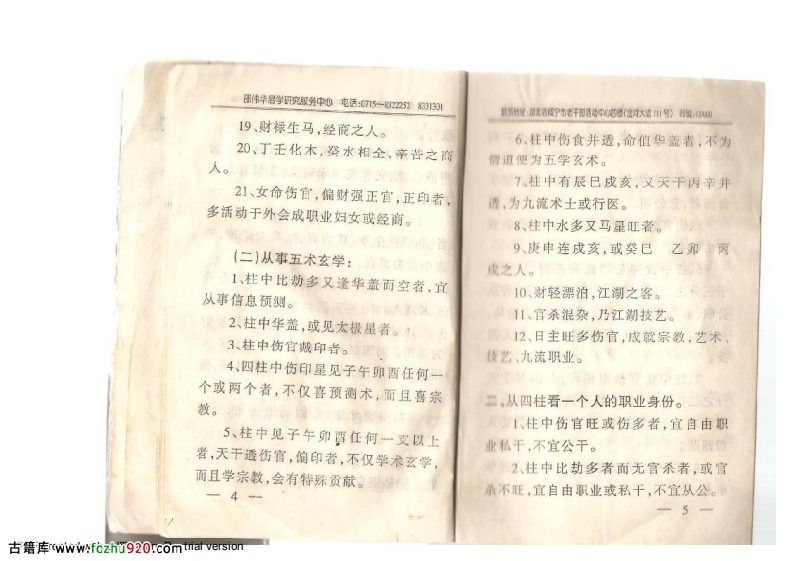 邵伟华易学研究服务中心 电话:0715—8322252 8331301
19、财禄生马,经商之人。
20、丁壬化木,癸水相全,辛苦之商
人。
21、女命伤官,偏财强正官,正印者,
多活动于外会成职业妇女或经商。
(二)从事五术玄学:
1、柱中比劫多又逢华盖而空者,宜
从事信息预测。
2、柱中华盖,或见太极星者。
3、柱中伤官战印者。
4、四柱中伤印星见子午卯酉任何一
个或两个者,不仅喜预测术,而且喜宗
教。
5、柱中见子午卯酉任何一支以上
者,天干透伤官,偏印者,不仅学术玄学,
而且学宗教,会有特殊贡献。
— 4 —
联系地址:湖北省咸宁市老干部活动中心四楼(淦河大道111号) 邮编:437000
6、柱中伤食并透,命值华盖者,不为
僧道便为五学玄术。
7、柱中有辰巳戌亥,又天干丙辛并
透,为九流术士或行医。
8、柱中水多又马星旺者。
9、庚申连戌亥,或癸巳 乙卯 丙
戌之人。
10、财轻漂泊,江湖之客。
11、官杀混杂,乃江湖技艺。
12、日主旺多伤官,成就宗教,艺术、
技艺、九流职业。
二、从四柱看一个人的职业身份。
1、柱中伤官旺或伤多者,宜自由职
业私干,不宜公干。
2、柱中比劫多者而无官杀者,或官
杀不旺,宜自由职业或私干,不宜从公。
— 5 —
古籍库 www.fozhu920.com trial version